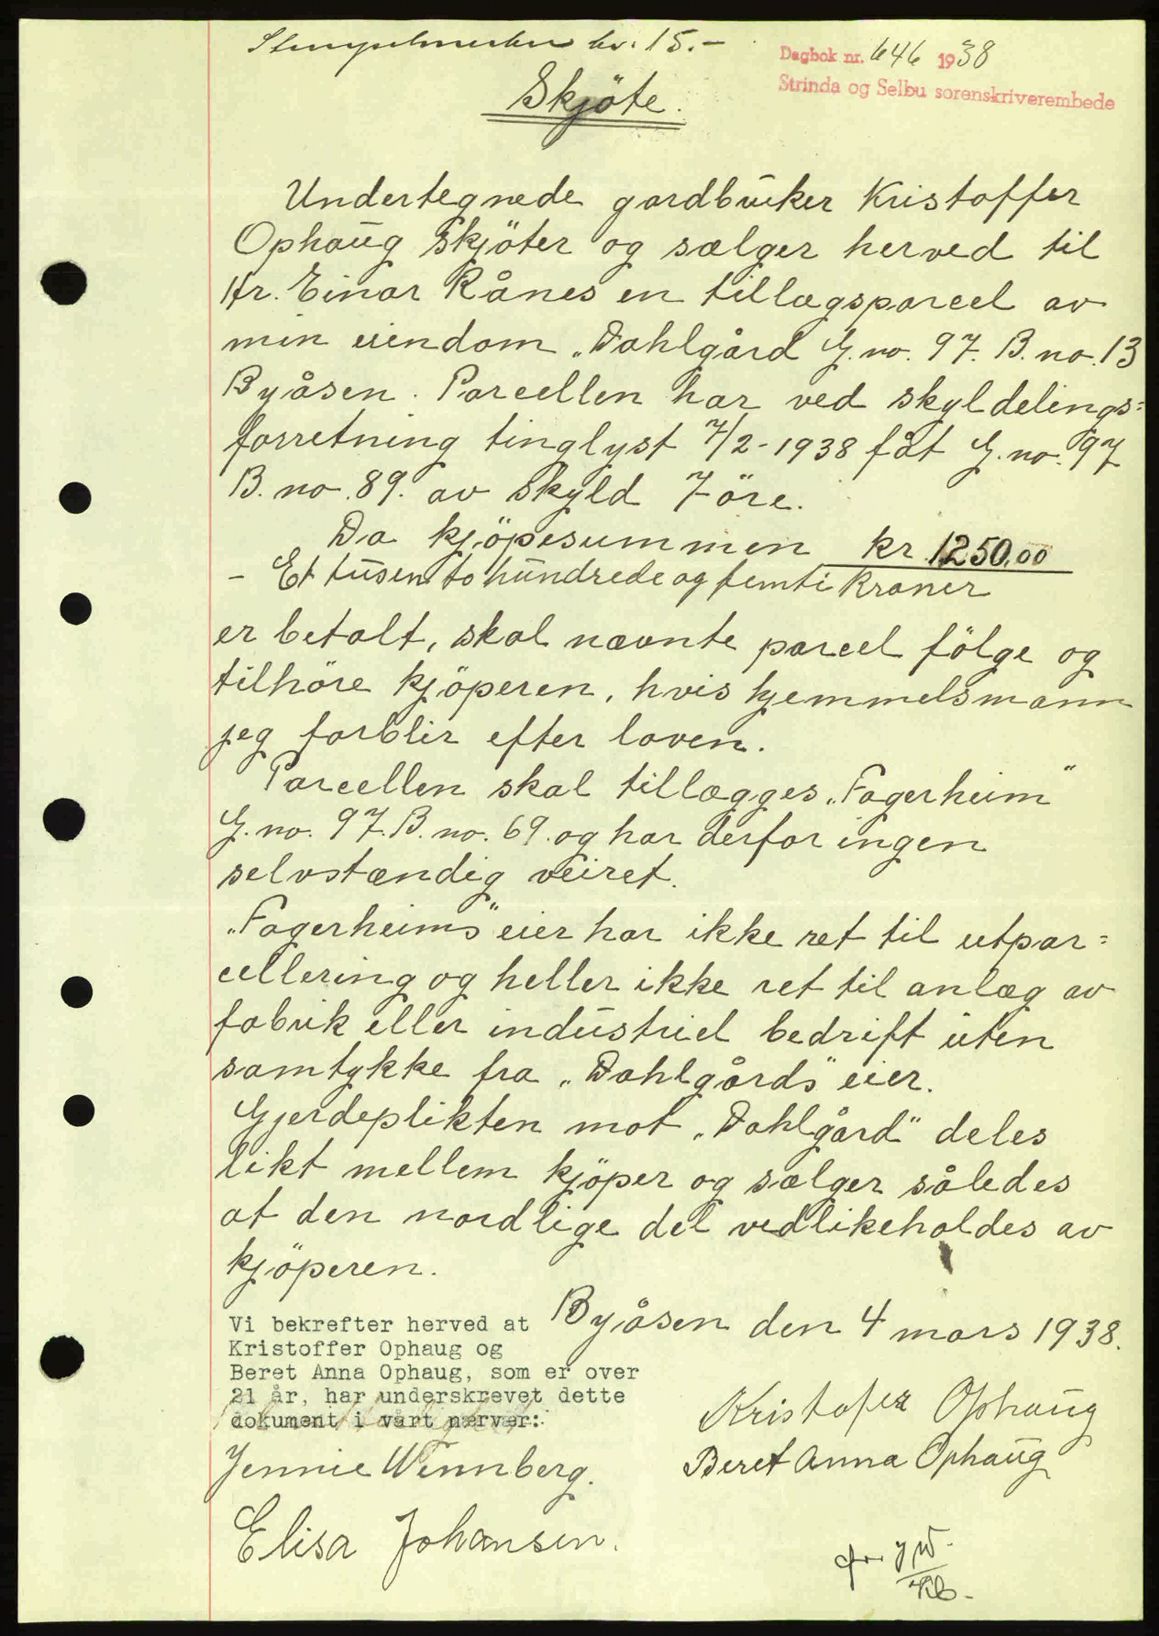 Stempelmerker kr. 15.-
Dagbok nr. 646 1938
Strinda og Selbu sorenskriverembede
Skjöte.
Undertegnede gardbruker Kristoffer
Ophaug skjöter og sælger herved til
Hr. Einar Rånes en tillægsparcel av
min eiendom „Dahlgård G. no. 97. B. no. 13
Byåsen. Parcellen har ved skyldelings=
forretning tinglyst 7/2-1938 fåt G. no. 97
B. no. 89. av Skyld 7 öre.
Da kjöpesummen kr 1250,00
- Et tusen to hundrede og femti kroner
er betalt, skal nævnte parcel fölge og
tilhöre kjöperen, hvis hjemmelsmann
jeg forblir efter loven.
Parcellen skal tillægges „Fagerheim"
G. no. 97. B. no. 69. og har derfor ingen
selvstændig veiret.
„Fagerheims" eier har ikke ret til utpar=
cellering og heller ikke ret til anlæg av
fabrik eller industriel bedrift uten
samtykke fra „Dahlgårds" eier.
Gjerdeplikten mot „Dahlgård" deles
likt mellem kjöper og sælger således
at den nordlige del vedlikeholdes av
kjöperen.
Byåsen den 4 mars 1938.
Vi bekrefter herved at
Kristoffer Ophaug og
Beret Anna Ophaug, som er over
21 år, har underskrevet dette
dokument i vårt nærvær:
Kristofer Ophaug
Beret Anna Ophaug
Jennie Wennberg.
Elisa Johansen.